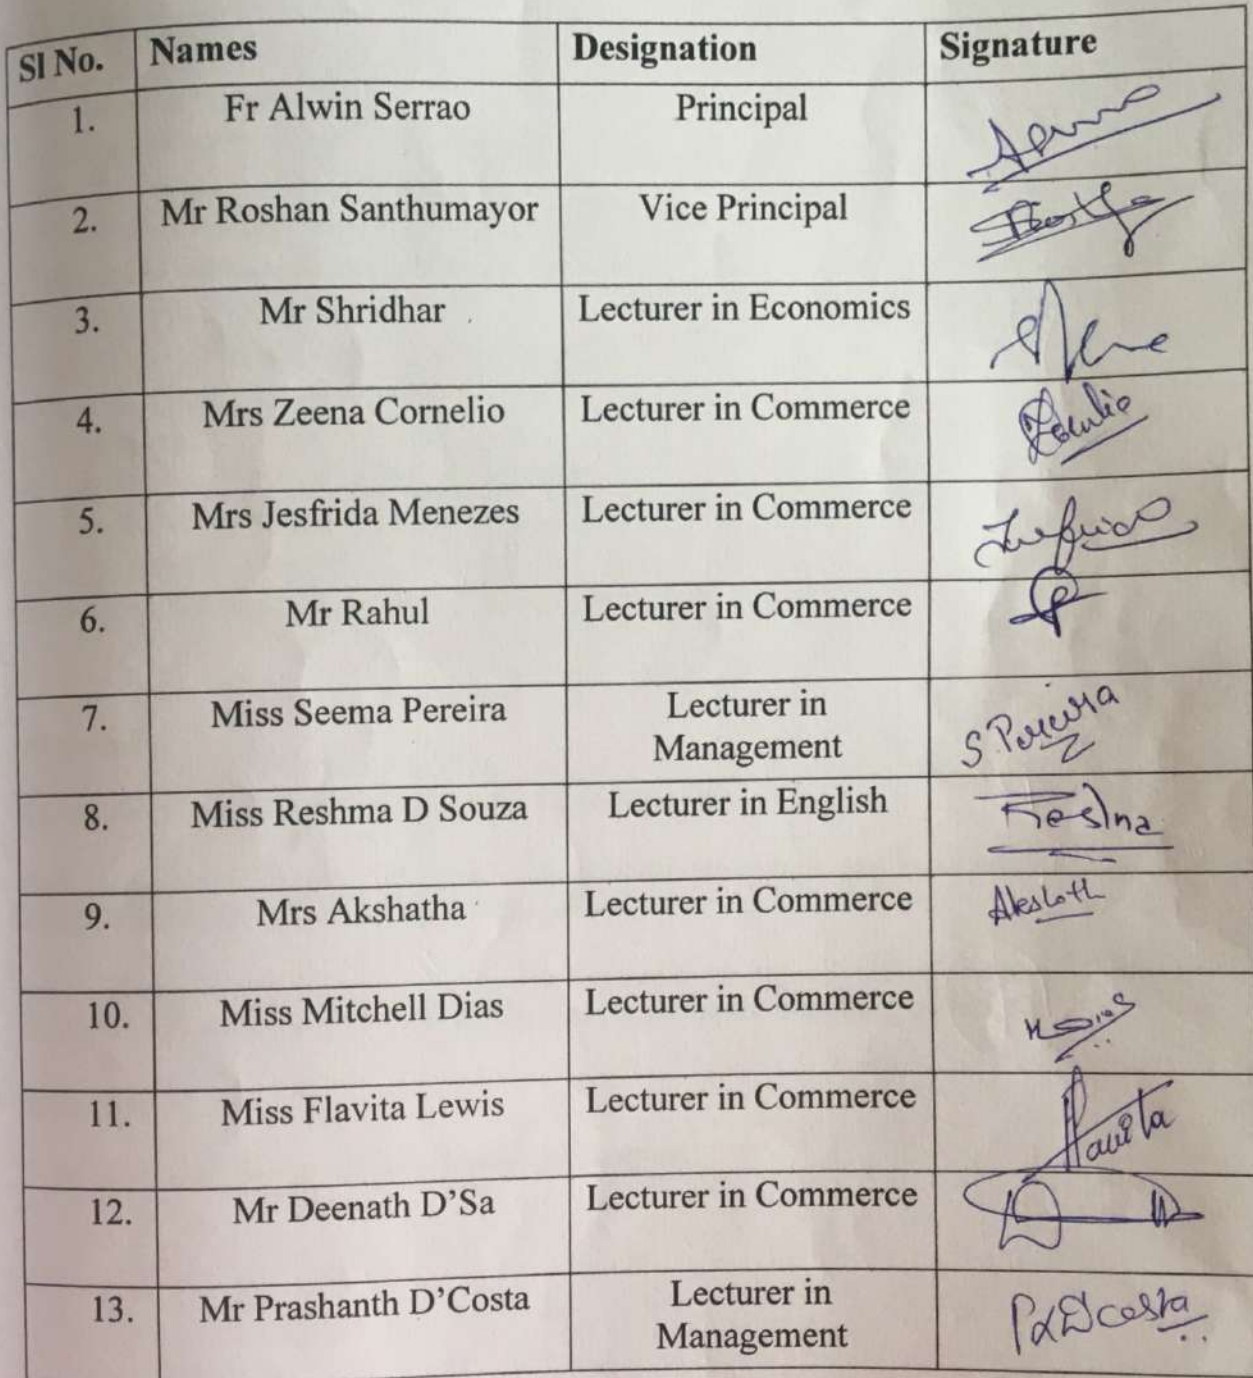 Sl No. Names Designation Signature
1. Fr Alwin Serrao Principal
2. Mr Roshan Santhumayor Vice Principal
3. Mr Shridhar Lecturer in Economics
4. Mrs Zeena Cornelio Lecturer in Commerce
5. Mrs Jesfrida Menezes Lecturer in Commerce
6. Mr Rahul Lecturer in Commerce
7. Miss Seema Pereira Lecturer in
Management S Pereira
8. Miss Reshma D Souza Lecturer in English
9. Mrs Akshatha Lecturer in Commerce
10. Miss Mitchell Dias Lecturer in Commerce
11. Miss Flavita Lewis Lecturer in Commerce Flavita
12. Mr Deenath D'Sa Lecturer in Commerce
13. Mr Prashanth D'Costa Lecturer in
Management